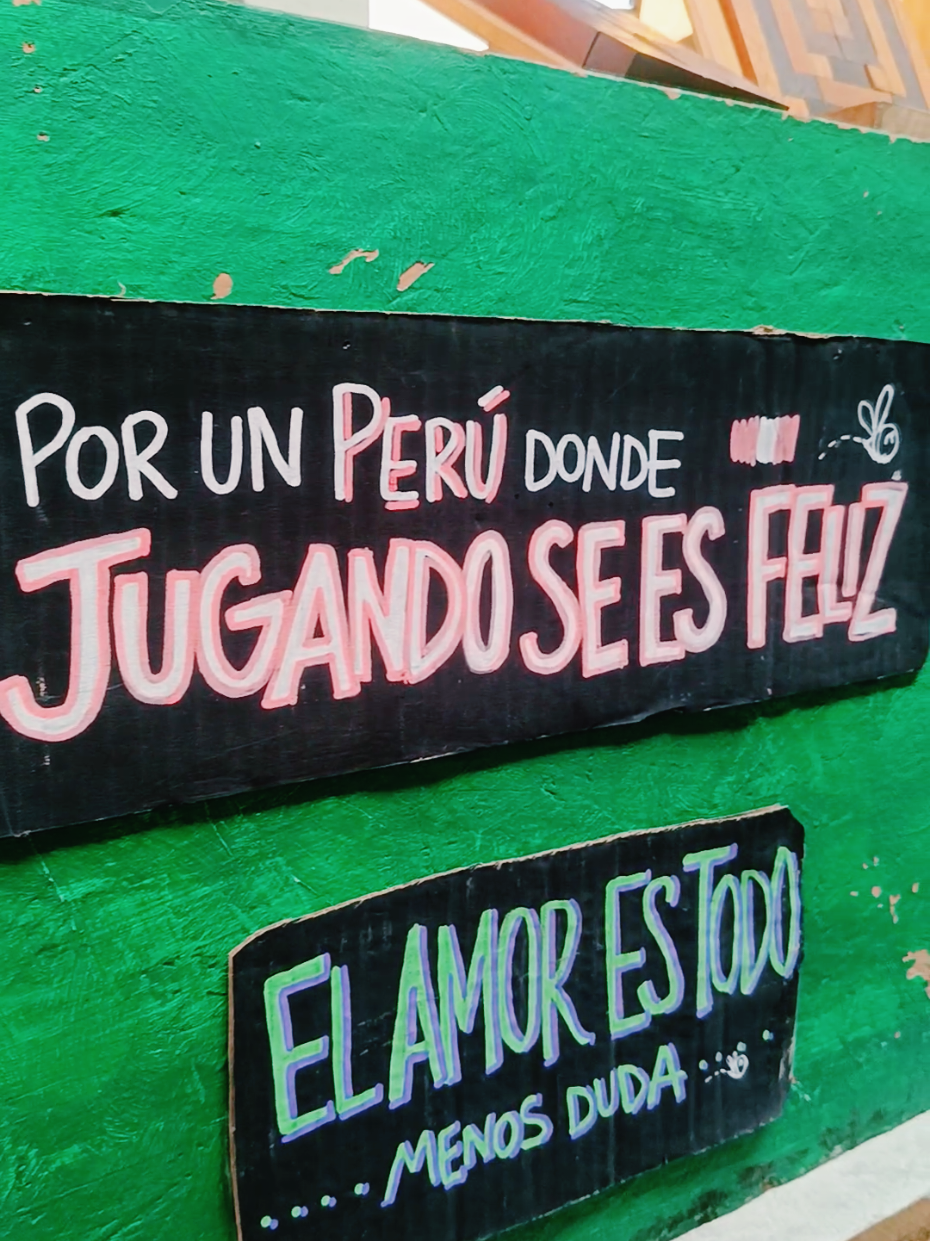 POR UN PERÚ DONDE
JUGANDO SE ES FELIZ
EL AMOR ES TODO
....MENOS DUDA...